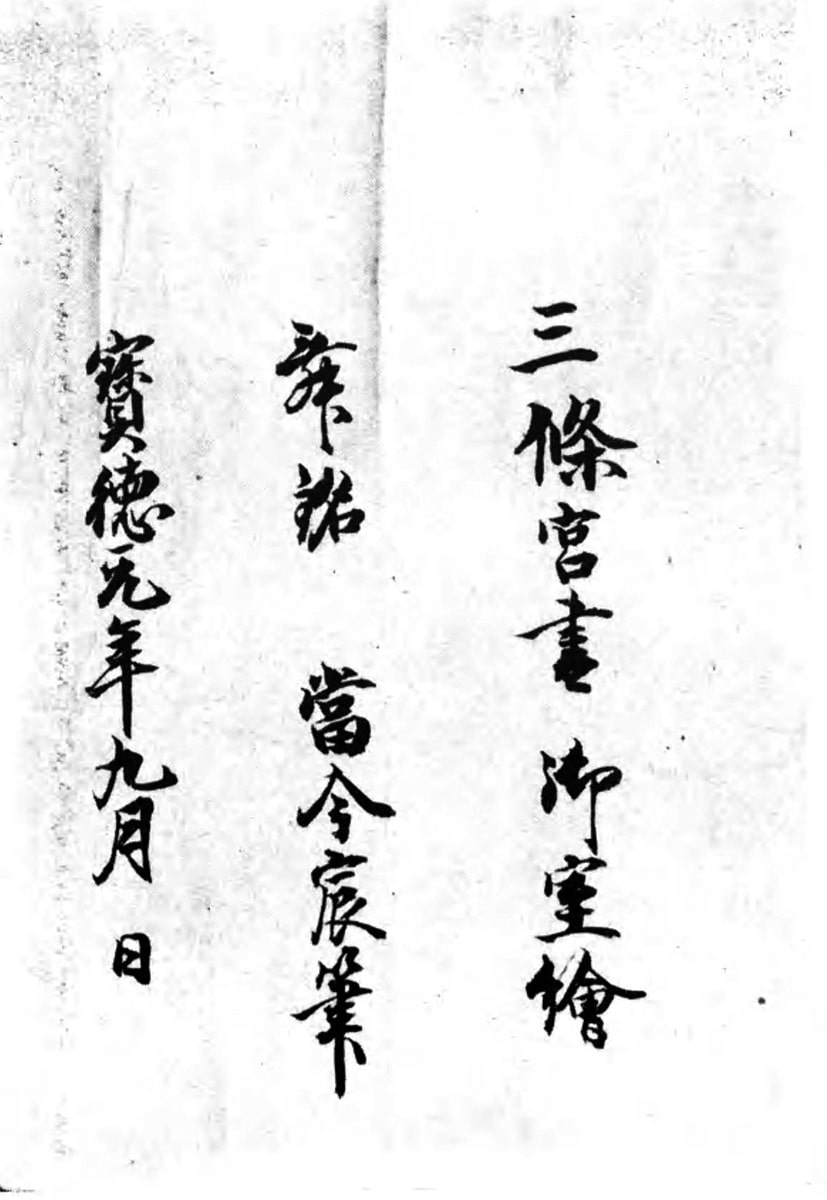 三條宮畫 御室繪
并銘 當今宸筆
寶德元年九月 日